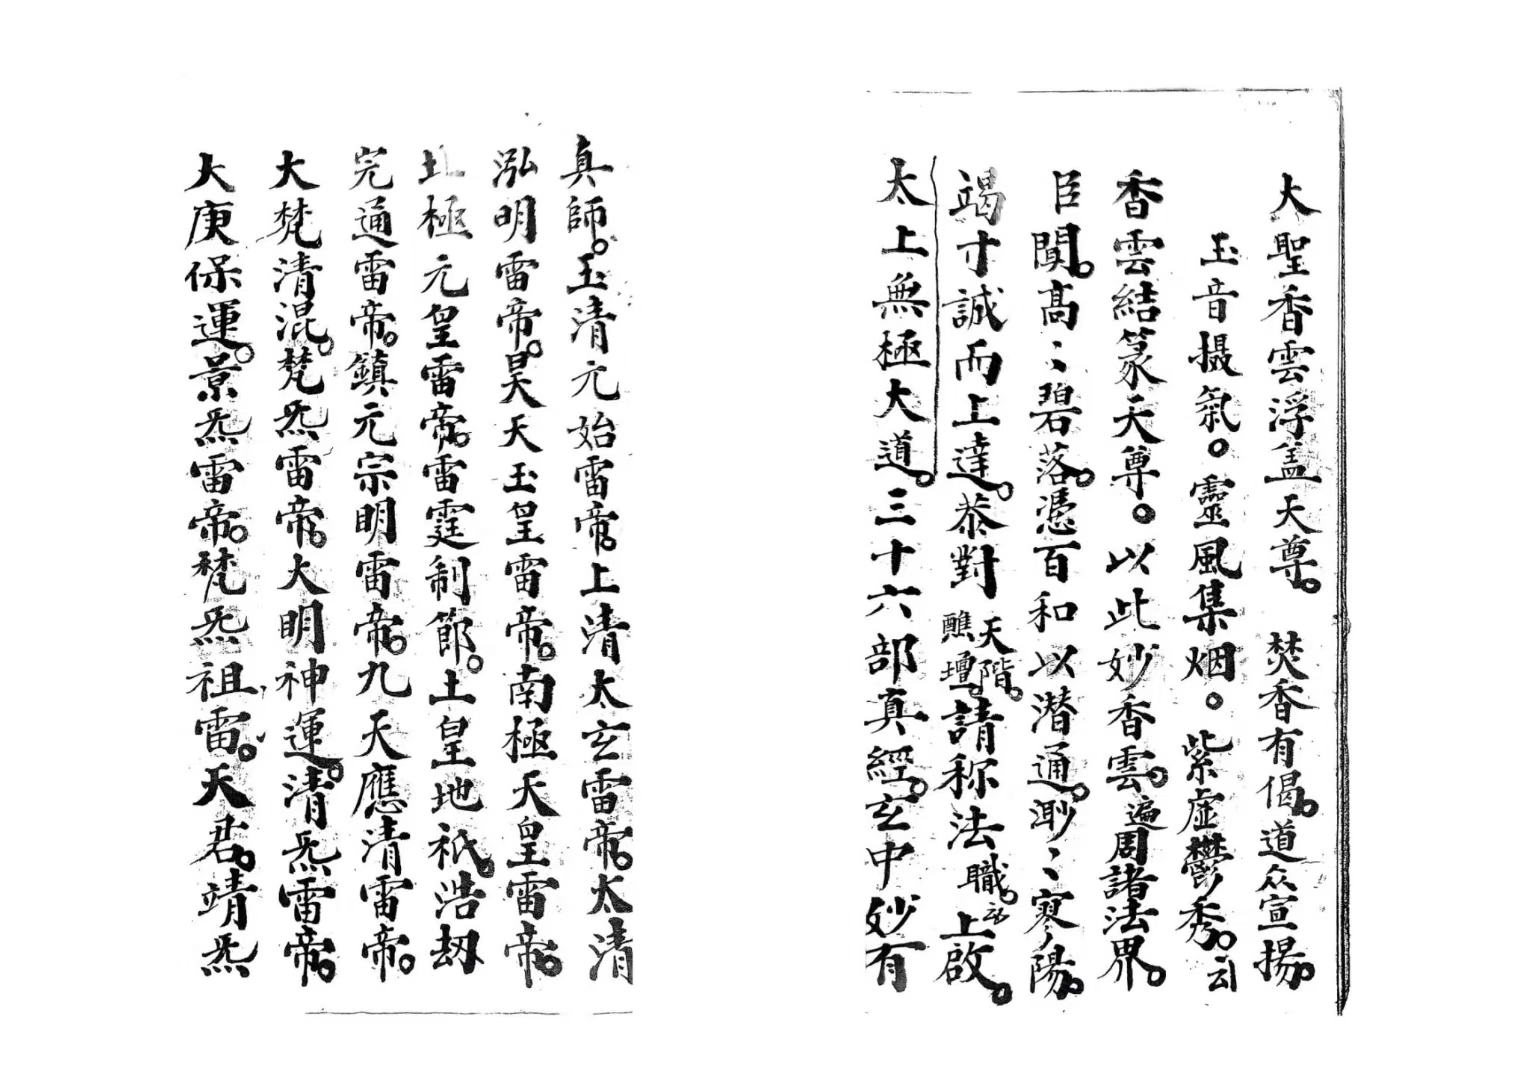 大聖香雲浮盖天尊。焚香有偈。道众宣揚。
玉音攝氣。靈風集烟。紫虛鬱秀。云
香雲結篆天尊。以此妙香雲。遍周諸法界。
臣闃。高〻碧落。憑百和以潜通。渺〻寥陽。
竭寸誠而上達。恭對天階醮壇。請称法職。云上啟。
太上無極大道。三十六部真經。玄中妙有
真師。玉清元始雷帝。上清太玄雷帝。太清
泓明雷帝。昊天玉皇雷帝。南極天皇雷帝。
北極元皇雷帝。雷霆制節。土皇地祇。浩刼
完通雷帝。鎮元宗明雷帝。九天應清雷帝。
大梵清混。梵炁雷帝。大明神運。清炁雷帝。
大庚保運。景炁雷帝。梵炁祖雷。天君。靖炁